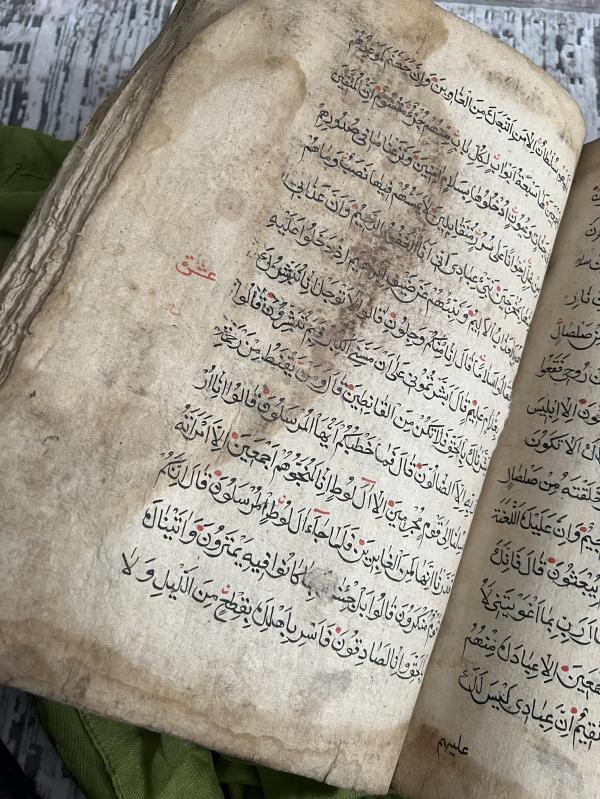 صلصال
روحي فقعوا
الا ابليس
الا تكون
خلقته من صلصال
وان عليك اللعنة
يبعثون قال فانك
رب بما اغويتني لا
الا عبادك منهم
ان عبادي ليس لك
عليهم
سلطان الا من اتبعك من الغاوين وان جهنم لموعدهم
لها سبعة ابواب لكل باب منهم جزء مقسوم ان المتقين
وعيون ادخلوها بسلام امنين ونزعنا ما في صدورهم
من غل اخوانا على سرر متقابلين لا يمسهم فيها نصب وما هم
بمخرجين نبئ عبادي اني انا الغفور الرحيم وان عذابي
العذاب الاليم ونبئهم عن ضيف ابرهيم اذ دخلوا عليه
سلاما قال انا منكم وجلون قالوا لا توجل انا نبشرك
بغلام عليم قال ابشرتموني على ان مسني الكبر فبم تبشرون قالوا
بالحق فلا تكن من القانطين قال ومن يقنط من رحمة
عشر
الا الضالون قال فما خطبكم ايها المرسلون قالوا انا ار
سلنا الى قوم مجرمين الا آل لوط انا لمنجوهم اجمعين الا امراته
قدرنا انها لمن الغابرين فلما جآء ال لوط المرسلون قال انكم
قوم منكرون قالوا بل جئناك بما كانوا فيه يمترون واتيناك
بالحق وانا لصادقون فاسر باهلك بقطع من الليل ولا